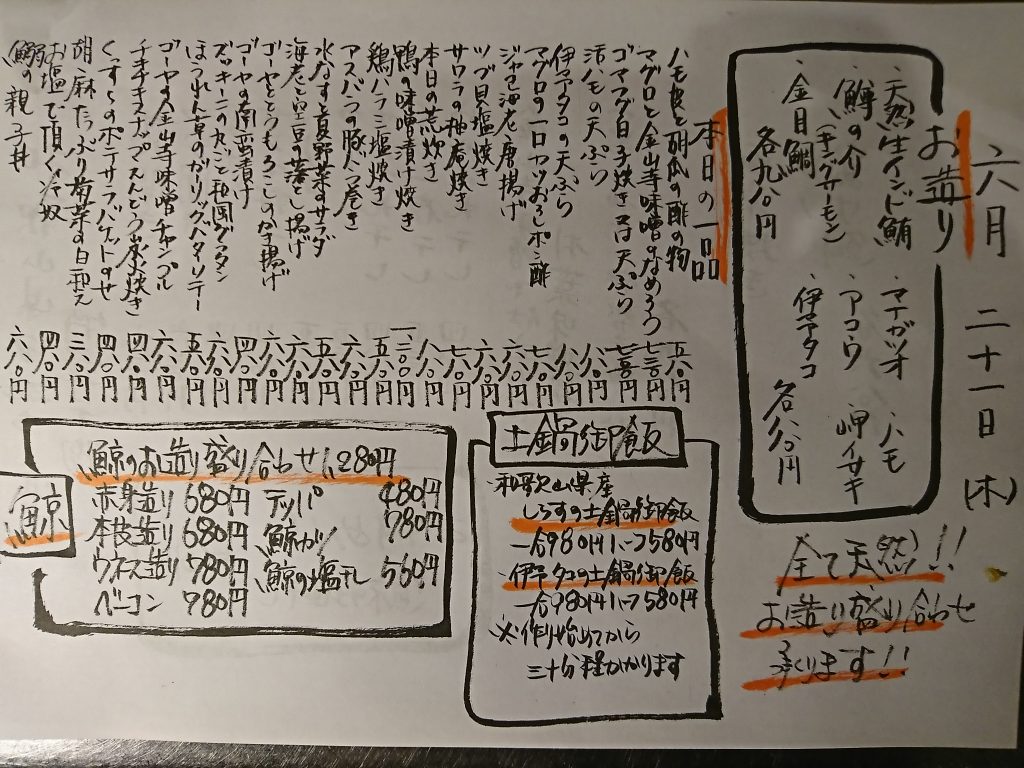 六月 二十一日(木)
お造り
・天然生インド鮪
・鱒の介
(キングサーモン)
・金目鯛
各九八〇円
・マナガツオ ・ハモ
・アコウ ・岬イサキ
・伊予タコ
各八八〇円
全て天然!!
お造り盛り合わせ
承ります!!
本日の一品
ハモ皮と胡瓜の酢の物 五八〇円
マグロと金山寺味噌のなめろう 七三〇円
ゴマフグ白子焼き又は天ぷら
活ハモの天ぷら 八八〇円
伊予タコの天ぷら 八八〇円
マグロの一口カツおろしポン酢 七八〇円
ジャコ海老唐揚げ 六八〇円
ツブ貝塩焼き 六八〇円
サワラの柚庵焼き 七八〇円
本日の荒炊き 八八〇円
鴨の味噌漬け焼き 一二〇〇円
鶏ハラミ塩焼き 五八〇円
アスパラの豚バラ巻き 六八〇円
水なすと夏野菜のサラダ 五八〇円
海老と空豆の落とし揚げ 六八〇円
ゴーヤととうもろこしのかき揚げ 六八〇円
ゴーヤの南蛮漬け 四八〇円
ズッキーニの丸ごと和風グラタン 六八〇円
ほうれん草のガーリックバターソテー 五八〇円
ゴーヤの金山寺味噌チャンプル 六八〇円
チキチキスナップえんどう山水炊き 四八〇円
くっすらのポテサラバケットのせ 四八〇円
胡麻たっぷり菊菜の白和え 三八〇円
お塩で頂く冷奴 四八〇円
鰯の親子丼 六八〇円
土鍋御飯
・和歌山県産
しらすの土鍋御飯
一合980円ハーフ580円
・伊予タコの土鍋御飯
一合980円ハーフ580円
※作り始めてから
三十分程かかります
鯨
鯨のお造り盛り合わせ1,280円
赤身造り 680円 テッパ 480円
本皮造り 680円 鯨カツ 780円
ウネス造り 780円 鯨の塩干し 560円
ベーコン 780円